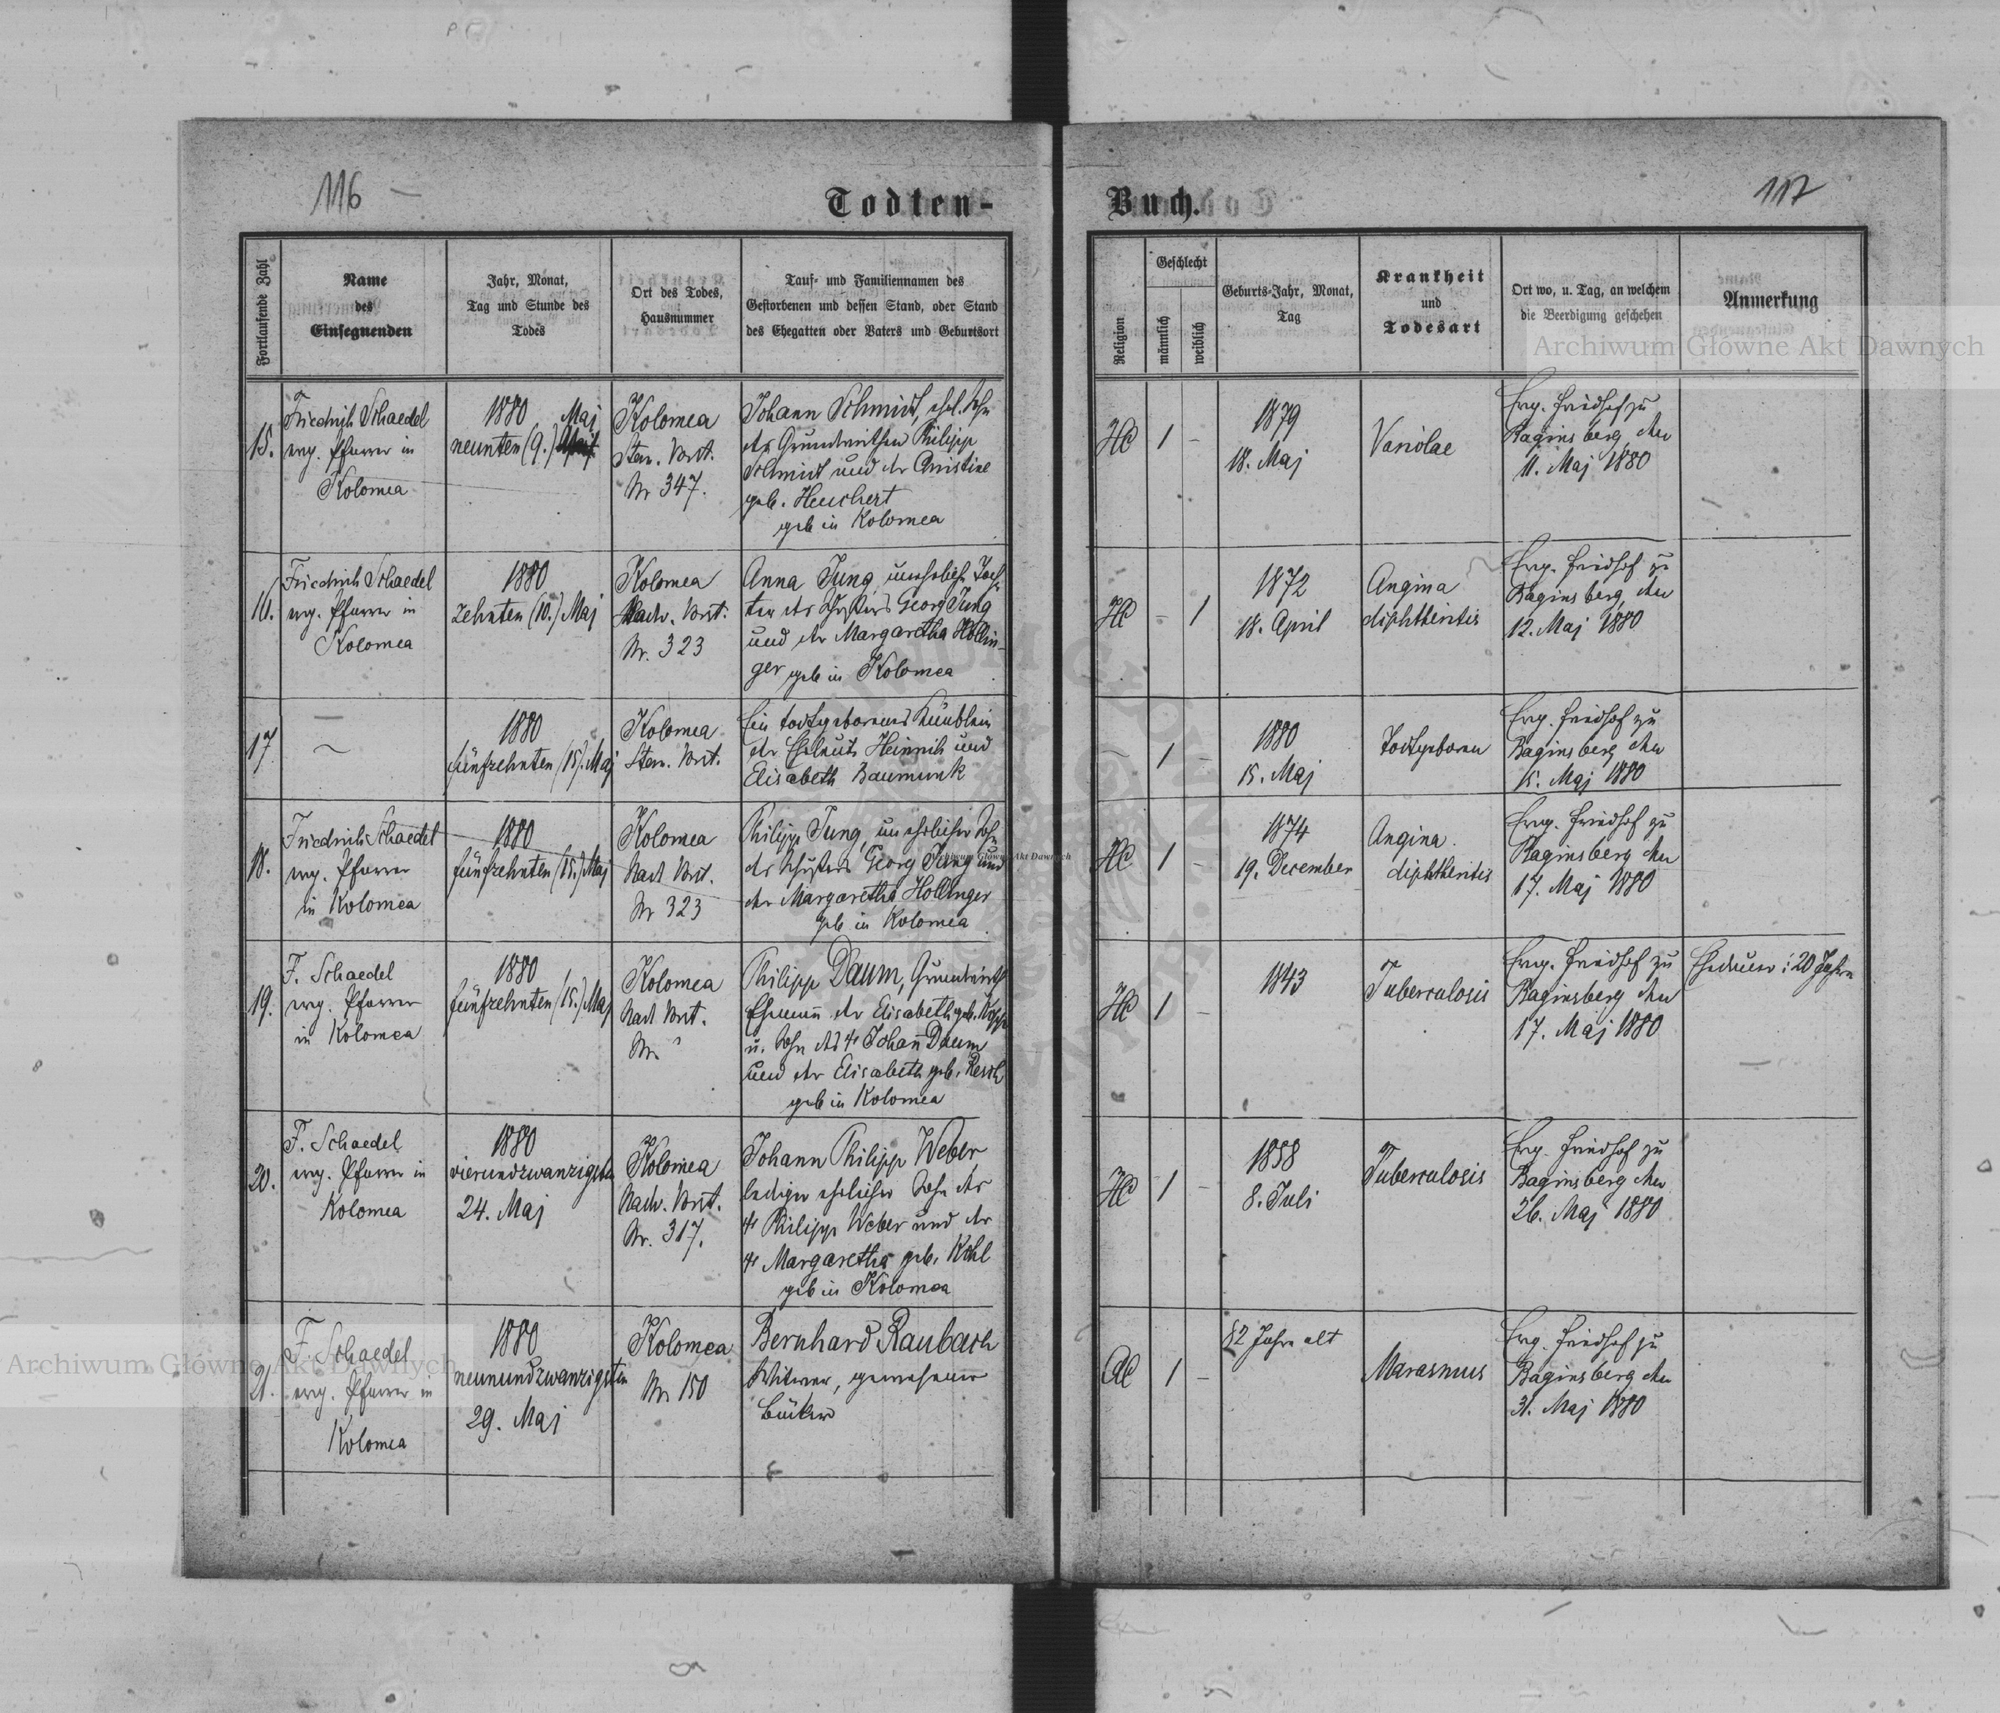 116
Todten-
Fortlaufende Zahl
Name
des
Einsegnenden
Jahr, Monat,
Tag und Stunde des
Todes
Ort des Todes,
Hausnummer
Tauf- und Familiennamen des
Gestorbenen und dessen Stand, oder Stand
des Ehegatten oder Vaters und Geburtsort
15.
Friedrich Schaedel
evg. Pfarrer in
Kolomea
1880
Maj
neunten (9.) April
Kolomea
Stan. Vorst.
Nr 347.
Johann Schmidt, ehel. Sohn
des Grundwirthen Philipp
Schmidt und der Christine
geb. Heuchert
geb in Kolomea
16.
Friedrich Schaedel
evg. Pfarrer in
Kolomea
1880
zehnten (10.) Maj
Kolomea
Nadw. Vorst.
Nr. 323
Anna Jung, unehliche Toch-
ter des Schusters Georg Jung
und der Margaretha Hollin-
ger geb in Kolomea
17
1880
fünfzehnten (15). Maj
Kolomea
Stan. Vorst.
Ein todtgeborenes Knäblein
der Eheleute Heinrich und
Elisabeth Baumunk
18.
Friedrich Schaedel
evg. Pfarrer
in Kolomea
1880
fünfzehnten (15.) Maj
Kolomea
Nad Vorst.
Nr 323
Philipp Jung, unehelicher Sohn
des Schusters Georg Jung und
der Margaretha Hollinger
geb in Kolomea
19.
F. Schaedel
evg. Pfarrer
in Kolomea
1880
fünfzehnten (15.) Maj
Kolomea
Nad Vorst.
Nr.
Philipp Daum, Grundwirth
Ehemann der Elisabeth geb.
u. Sohn des † Johann Daum
und der Elisabeth geb. Resch
geb in Kolomea
20.
F. Schaedel
evg. Pfarrer in
Kolomea
1880
vierundzwanzigsten
24. Maj
Kolomea
Nadw. Vorst.
Nr. 317.
Johann Philipp Weber
lediger ehelicher Sohn des
† Philipp Weber und der
† Margaretha geb. Kohl
geb in Kolomea
21.
F. Schaedel
evg. Pfarrer in
Kolomea
1880
neunundzwanzigsten
29. Maj
Kolomea
Nr 150
Bernhard Raubach
Witwer, gewesener
Bäcker
Buch.
117
Religion
Geschlecht
männlich
weiblich
Geburts-Jahr, Monat,
Tag
Krankheit
und
Todesart
Ort wo, u. Tag, an welchem
die Beerdigung geschehen
Anmerkung
HC
1
-
1879
18. Maj
Variolae
Evg. Friedhof zu
Baginsberg den
11. Maj 1880
HC
-
1
1872
18. April
Angina
diphtheritis
Evg. Friedhof zu
Baginsberg den
12. Maj 1880
-
1
-
1880
15. Maj
Todtgeboren
Evg. Friedhof zu
Baginsberg den
15. Maj 1880
HC
1
-
1874
19. December
Angina
diphtheritis
Evg. Friedhof zu
Baginsberg den
17. Maj 1880
HC
1
-
1843
Tuberculosis
Evg. Friedhof zu
Baginsberg den
17. Maj 1880
Ehedauer: 20 Jahre
HC
1
-
1858
8. Juli
Tuberculosis
Evg. Friedhof zu
Baginsberg den
26. Maj 1880
AC
1
-
82 Jahre alt
Marasmus
Evg. Friedhof zu
Baginsberg den
31. Maj 1880
Archiwum Główne Akt Dawnych
Archiwum Główne Akt Dawnych
Archiwum Główne Akt Dawnych